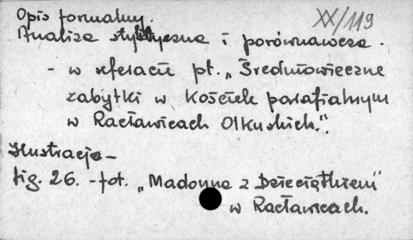 Opis formalny.
XX/119
Analiza stylistyczna i porównawcza.
- w referacie pt. „Średniowieczne
zabytki w Kościele parafialnym
w Racławicach Olkuskich."
Ilustracje -
fig. 26. - fot. „Madonna z Dzieciątkiem"
w Racławicach.